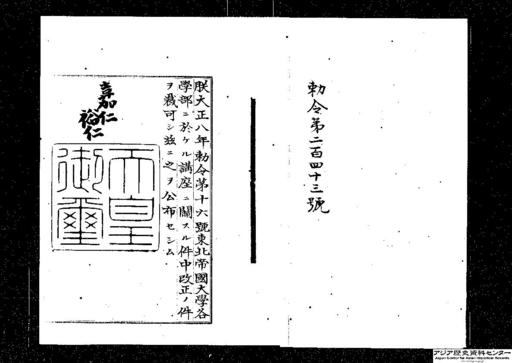 勅令第二百四十三號
朕大正八年勅令第十六號東北帝國大學各
學部ニ於ケル講座ニ關スル件中改正ノ件
ヲ裁可シ茲ニ之ヲ公布セシム
嘉仁
裕仁
天皇
御璽
アジア歴史資料センター
Japan Center for Asian Historical Records